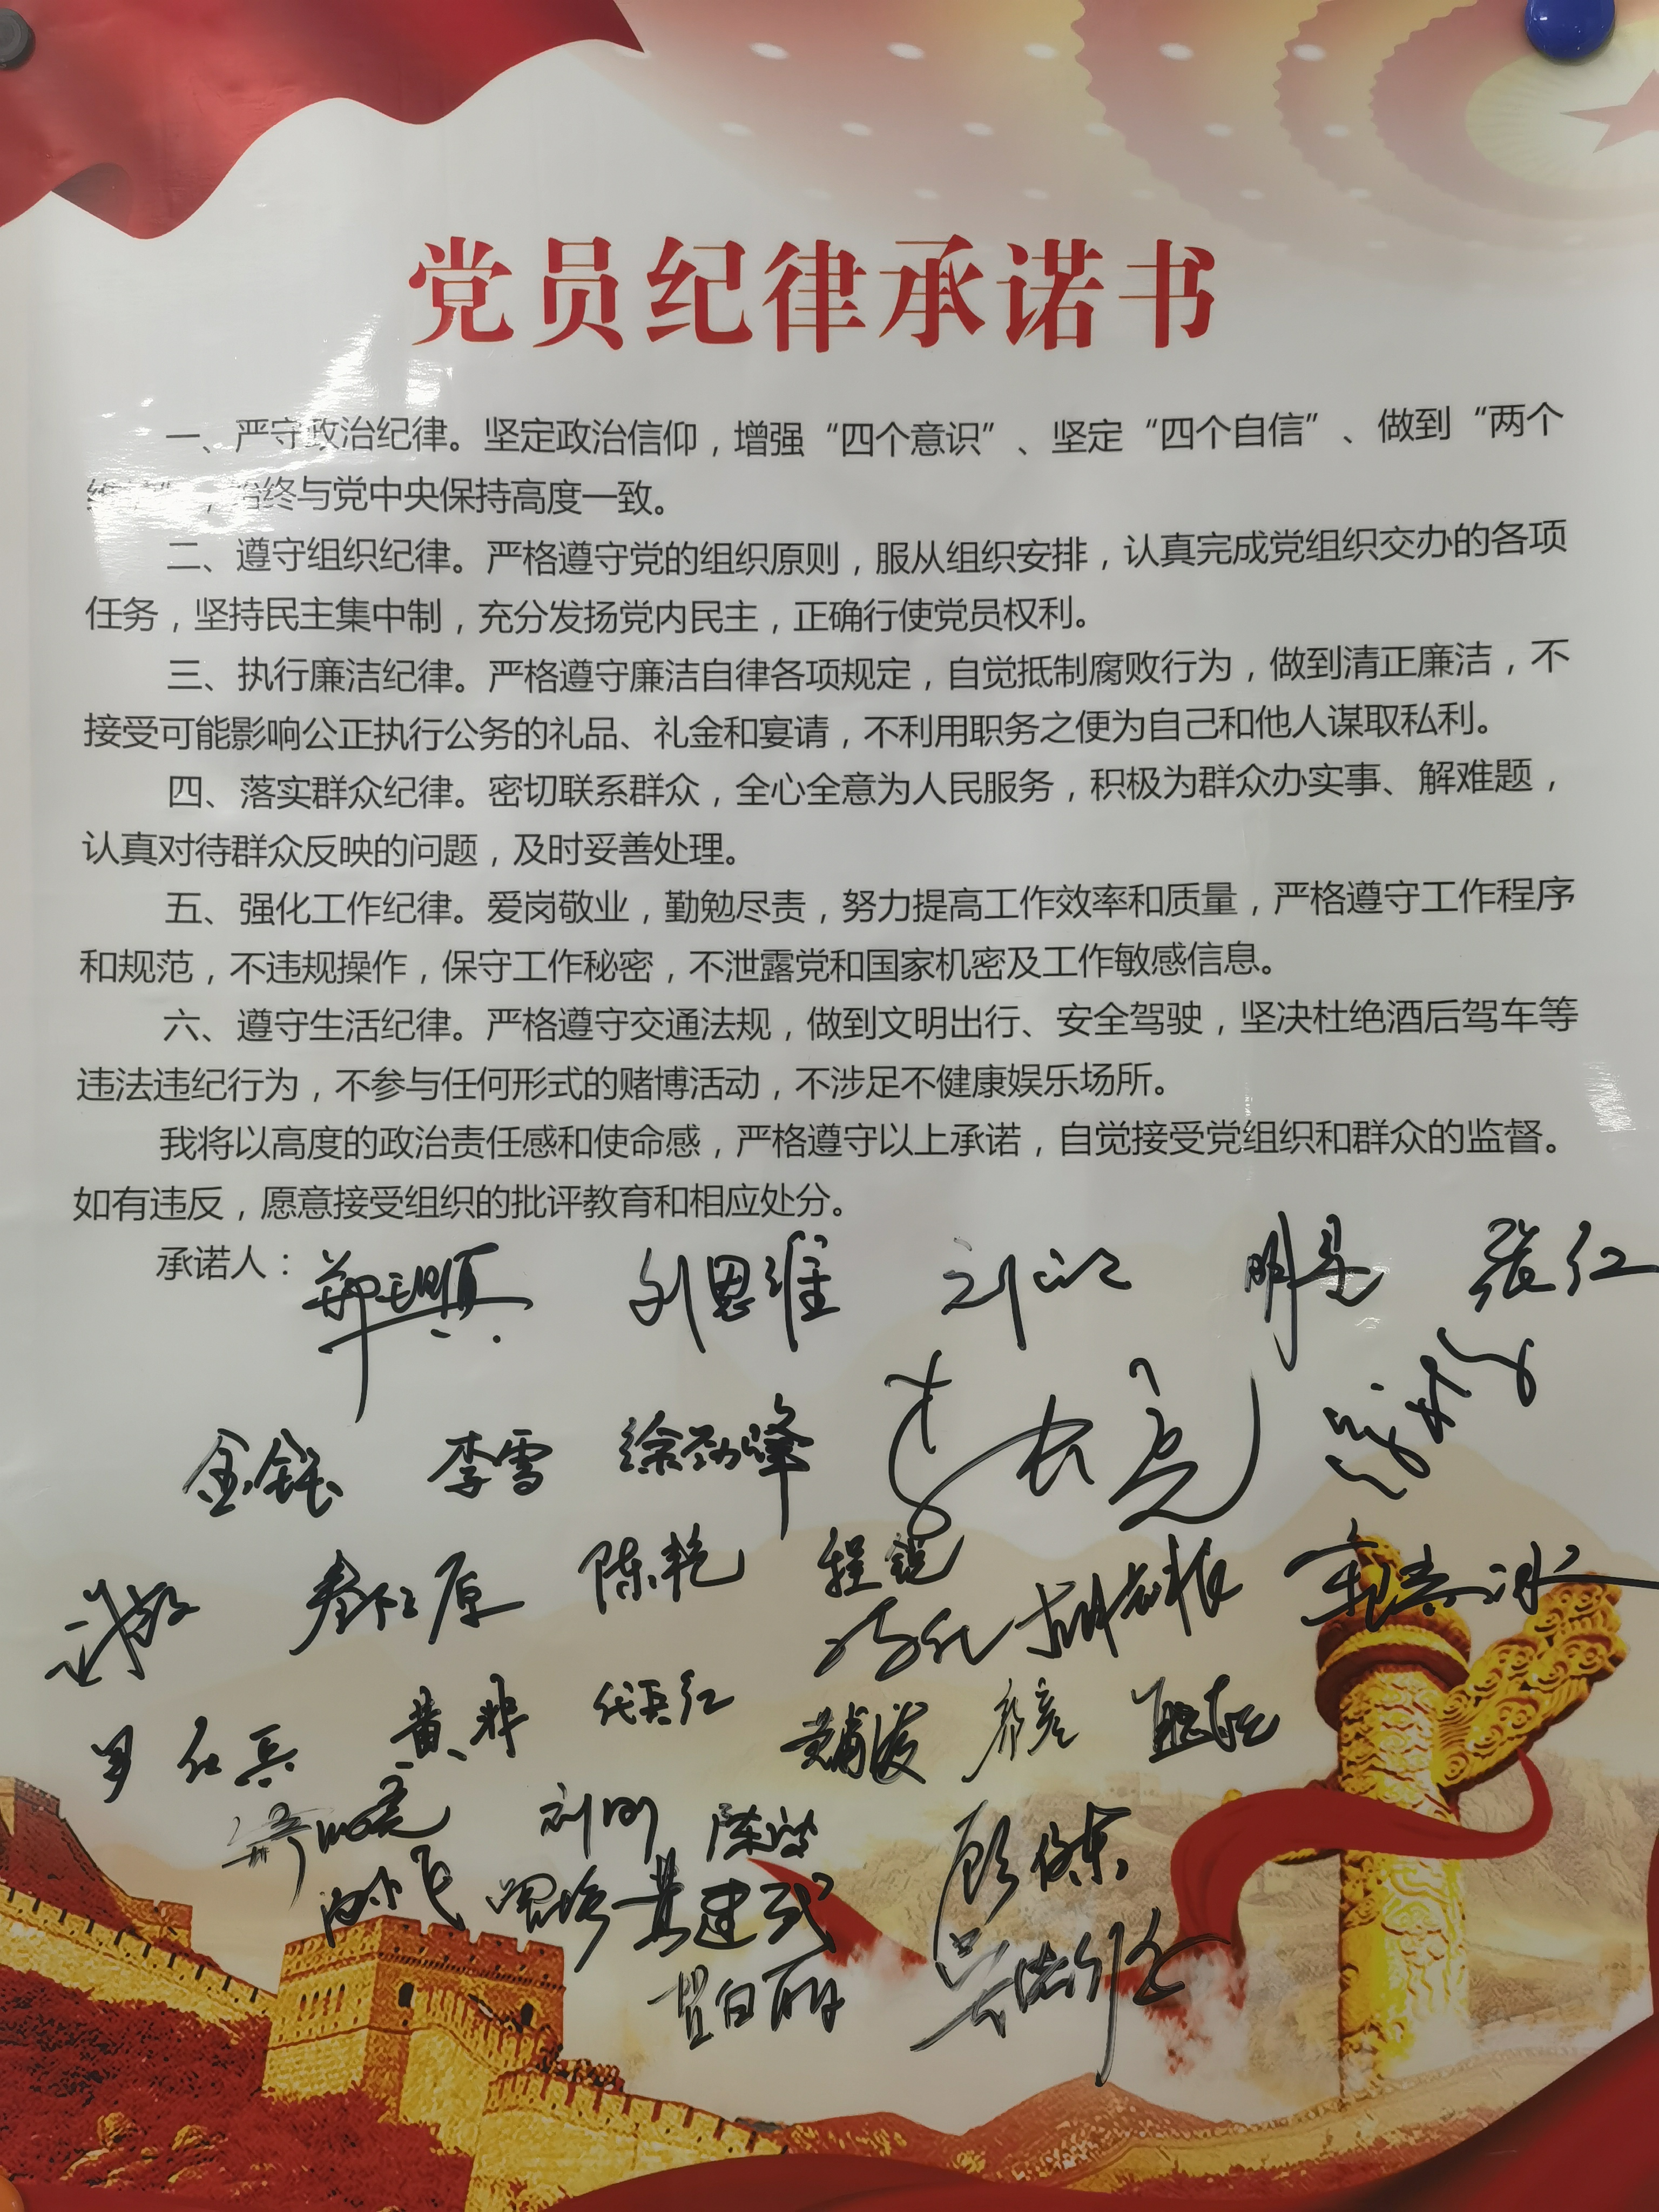 党员纪律承诺书
一、严守政治纪律。坚定政治信仰，增强“四个意识”、坚定“四个自信”、做到“两个
”，始终与党中央保持高度一致。
二、遵守组织纪律。严格遵守党的组织原则，服从组织安排，认真完成党组织交办的各项
任务，坚持民主集中制，充分发扬党内民主，正确行使党员权利。
三、执行廉洁纪律。严格遵守廉洁自律各项规定，自觉抵制腐败行为，做到清正廉洁，不
接受可能影响公正执行公务的礼品、礼金和宴请，不利用职务之便为自己和他人谋取私利。
四、落实群众纪律。密切联系群众，全心全意为人民服务，积极为群众办实事、解难题，
认真对待群众反映的问题，及时妥善处理。
五、强化工作纪律。爱岗敬业，勤勉尽责，努力提高工作效率和质量，严格遵守工作程序
和规范，不违规操作，保守工作秘密，不泄露党和国家机密及工作敏感信息。
六、遵守生活纪律。严格遵守交通法规，做到文明出行、安全驾驶，坚决杜绝酒后驾车等
违法违纪行为，不参与任何形式的赌博活动，不涉足不健康娱乐场所。
我将以高度的政治责任感和使命感，严格遵守以上承诺，自觉接受党组织和群众的监督。
如有违反，愿意接受组织的批评教育和相应处分。
承诺人： 刘恩维 张红
李雪 徐劲峰
陈艳 程锐
黄非 代兵红
刘明
黄建武